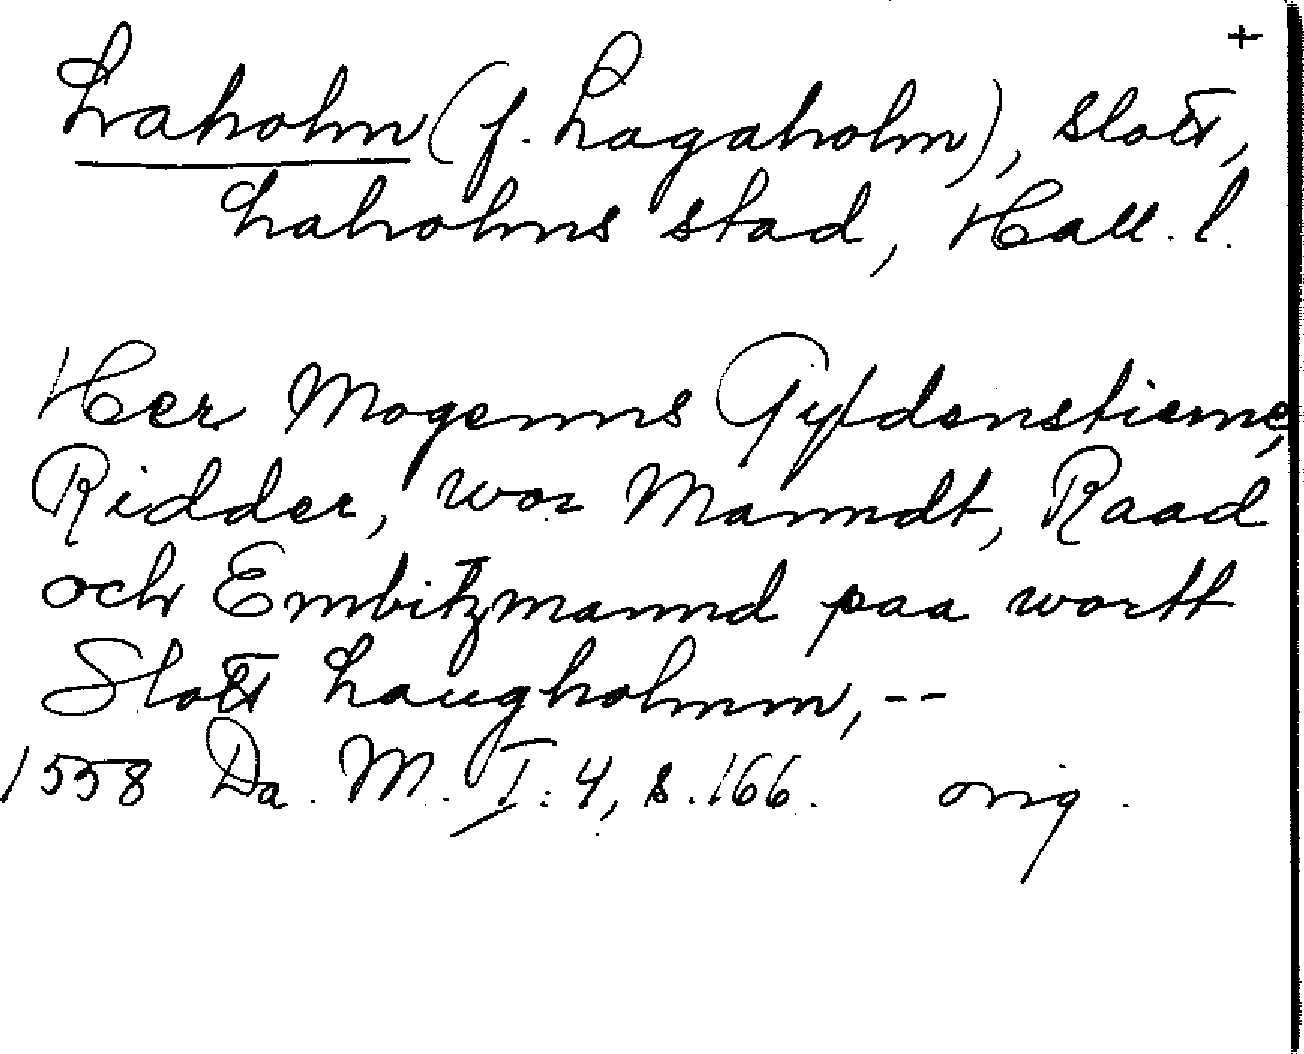 +
Laholm (f. Lagaholm), slott,
Laholms stad, Hall. l.
Her Mogenns Gyldenstierne,
Ridder, wor Manndt, Raad
och Embitzmannd paa wortt
Slott Laugholmm, --
1558 Da. M. I:4, s. 166. orig.